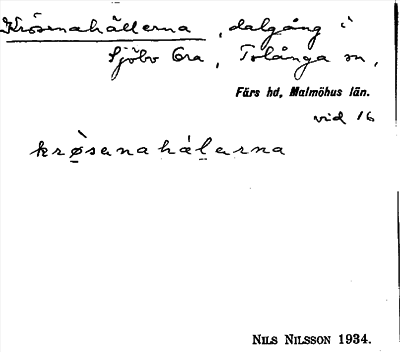 Krösenahällerna, dalgång i
Sjöbo Ora, Tolånga sn,
Färs hd, Malmöhus län.
vid 16
krø̀sanahálarna
NILS NILSSON 1934.